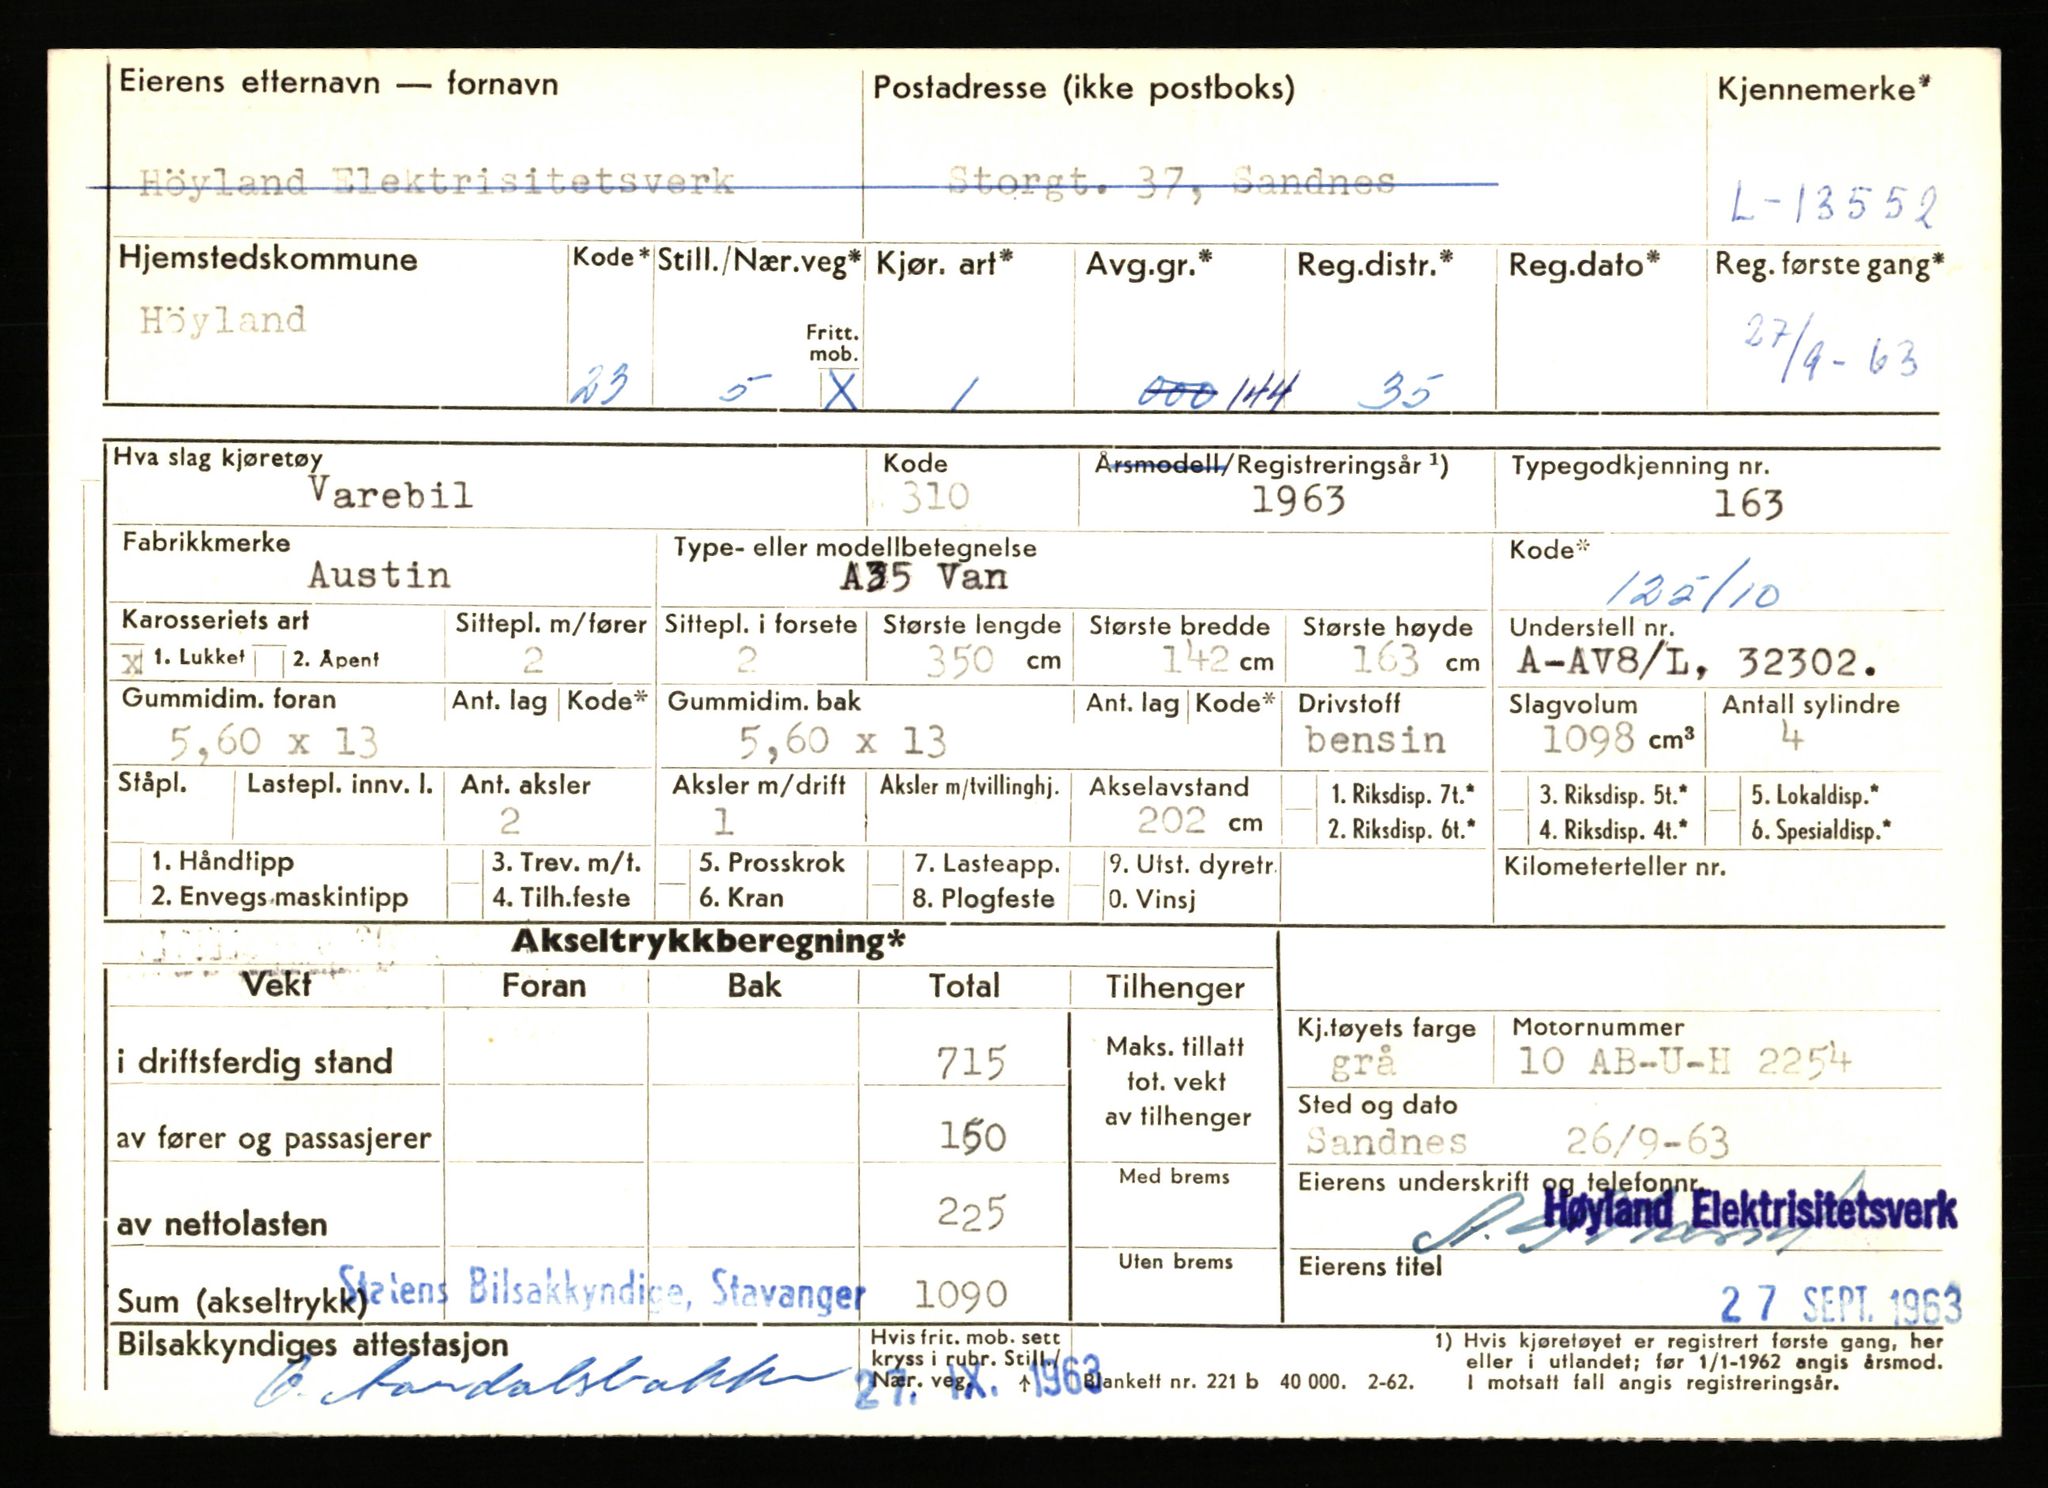 Eierens etternavn — fornavn Postadresse (ikke postboks) Kjennemerke*
Höyland Elektrisitetsverk Storgt. 37, Sandnes L-13552
Hjemstedskommune Kode* Still./Nær.veg* Kjør. art* Avg.gr.* Reg.distr.* Reg.dato* Reg. første gang*
Höyland Fritt. mob. 27/9-63
23 5 X 1 000 144 35
Hva slag kjøretøy Kode Årsmodell/Registreringsår 1) Typegodkjenning nr.
Varebil 310 1963 163
Fabrikkmerke Type- eller modellbetegnelse Kode*
Austin A35 Van 125/10
Karosseriets art Sittepl. m/fører Sittepl. i forsete Største lengde Største bredde Største høyde Understell nr.
x 1. Lukket 2. Åpent 2 2 350 cm 142 cm 163 cm A-AV8/L, 32302.
Gummidim. foran Ant. lag Kode* Gummidim. bak Ant. lag Kode* Drivstoff Slagvolum Antall sylindre
5,60 x 13 5,60 x 13 bensin 1098 cm³ 4
Ståpl. Lastepl. innv. l. Ant. aksler Aksler m/drift Aksler m/tvillinghj. Akselavstand 1. Riksdisp. 7t.* 3. Riksdisp. 5t.* 5. Lokaldisp.*
2 1 202 cm 2. Riksdisp. 6t.* 4. Riksdisp. 4t.* 6. Spesialdisp.*
1. Håndtipp 3. Trev. m/t. 5. Prosskrok 7. Lasteapp. 9. Utst. dyretr. Kilometerteller nr.
2. Envegs maskintipp 4. Tilh.feste 6. Kran 8. Plogfeste 0. Vinsj
Akseltrykkberegning*
Vekt Foran Bak Total Tilhenger
Kj.tøyets farge Motornummer
i driftsferdig stand 715 Maks. tillatt tot. vekt av tilhenger grå 10 AB-U-H 2254
Sted og dato
av fører og passasjerer 150 Sandnes 26/9-63
Med brems Eierens underskrift og telefonnr.
av nettolasten 225 Høyland Elektrisitetsverk
Uten brems Eierens titel
Sum (akseltrykk) Statens Bilsakkyndige, Stavanger 1090 27 SEPT. 1963
Bilsakkyndiges attestasjon Hvis frit. mob. sett 1) Hvis kjøretøyet er registrert første gang, her
kryss i rubr. Still./ eller i utlandet; før 1/1-1962 angis årsmod.
Nær. veg. ↑ Blankett nr. 221 b 40 000. 2-62. I motsatt fall angis registreringsår.
27. IX. 1963